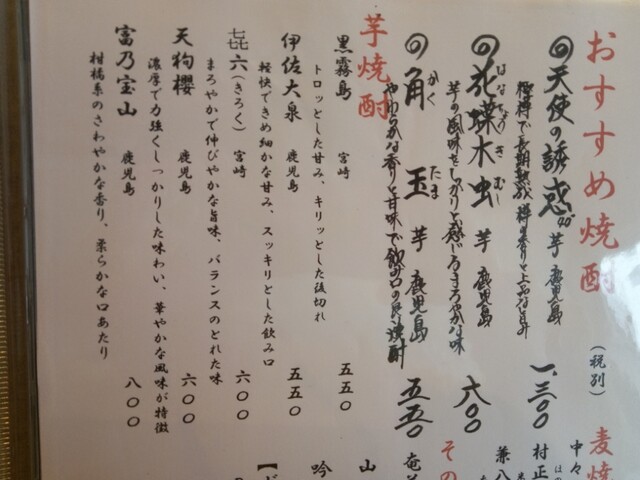 おすすめ焼酎
(税別)
天使の誘惑 40° 芋 鹿児島 一、三〇〇
花蝶木虫 芋 鹿児島 六〇〇
はなちょうきむし
芋の風味をしっかりと感じるまろやかな味
角玉 芋 鹿児島 五五〇
かくたま
やわらかな香りと甘味で飲み口の良い焼酎
芋焼酎
黒霧島 宮崎 五五〇
トロッとした甘み、キリッとした後切れ
伊佐大泉 鹿児島 五五〇
軽快できめ細かな甘み、スッキリとした飲み口
㐂六(きろく) 宮崎 六〇〇
まろやかで伸びやかな旨味、バランスのとれた味
天狗櫻 鹿児島 六〇〇
濃厚で力強くしっかりした味わい、華やかな風味が特徴
富乃宝山 鹿児島 八〇〇
柑橘系のさわやかな香り、柔らかな口あたり
麦焼
中々
村正
兼八
その
奄美
山
吟